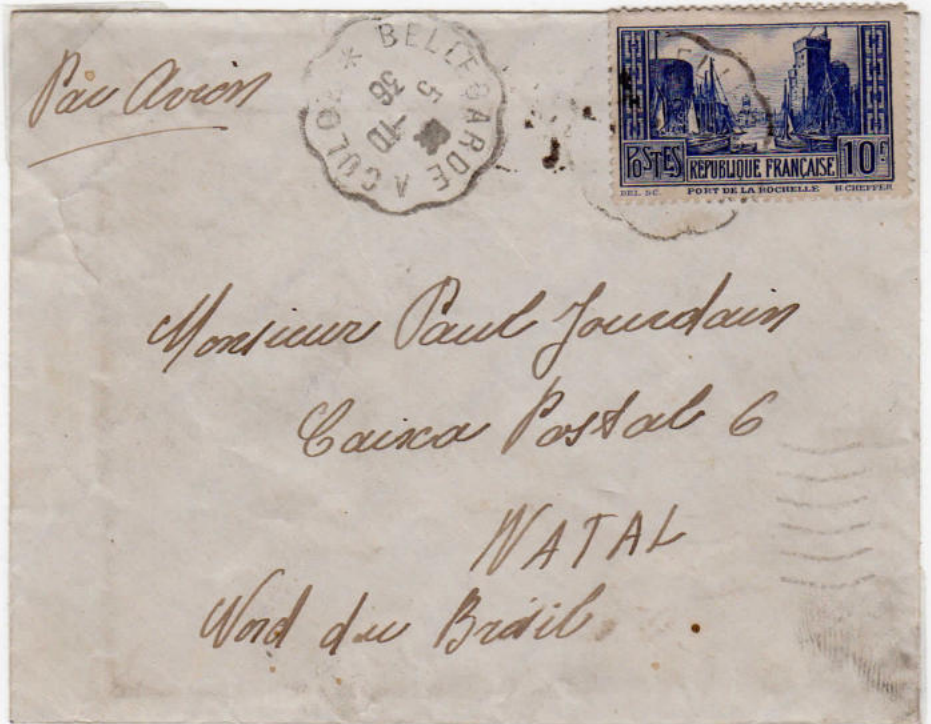 Par Avion
BELLEGARDE A CULOZ *
5 -10
36
POSTES RÉPUBLIQUE FRANÇAISE 10F
DEL. SC. PORT DE LA ROCHELLE H.CHEFFER
Monsieur Paul Jourdain
Caixa Postal 6
NATAL
Nord du Brésil